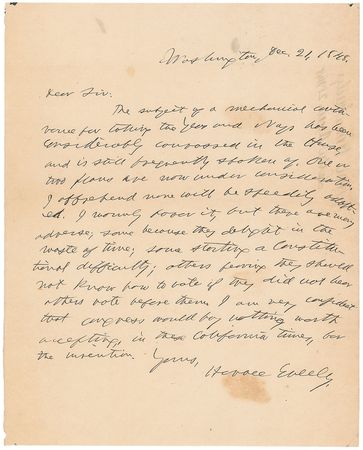 Washington, Dec. 21, 1848.
Dear Sir:
The subject of a mechanical contri-
vance for taking the Yeas and Nays has been
considerably canvassed in the House,
and is still frequently spoken of. One or
two plans are now under consideration
I apprehend none will be speedily adopt-
ed. I warmly favor it, but there are many
adverse; some because they delight in the
waste of time; some starting a Constitu-
tional difficulty; others fearing they should
not know how to vote if they did not hear
others vote before them. I am very confident
that Congress would pay nothing worth
accepting, in these California times, for
the invention. Yours,
Horace Greeley.